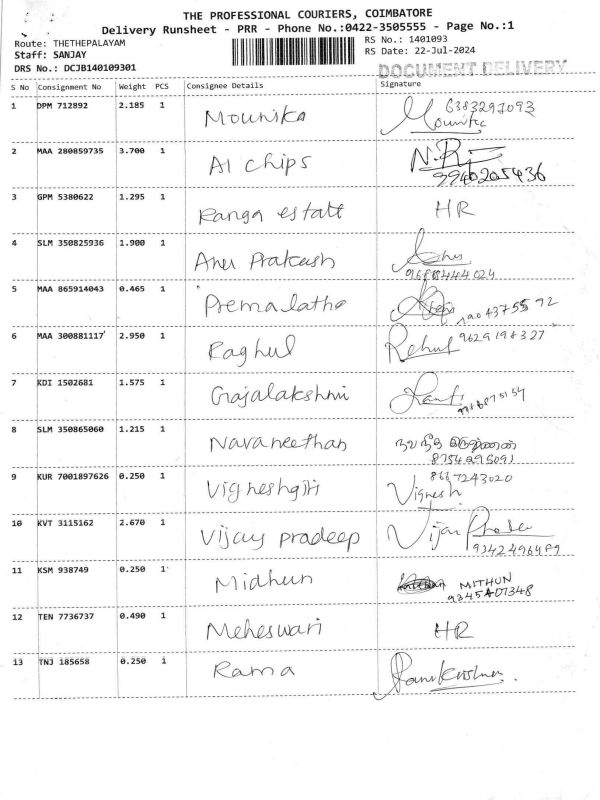 THE PROFESSIONAL COURIERS, COIMBATORE
Delivery Runsheet - PRR - Phone No.:0422-3505555 - Page No.:1
Route: THETHEPALAYAM
RS No.: 1401093
Staff: SANJAY
RS Date: 22-Jul-2024
DRS No.: DCJB140109301
DOCUMENT DELIVERY
S No Consignment No Weight PCS Consignee Details Signature
1 DPM 712892 2.185 1 Mounika 6383291093
Mounika
2 MAA 280859735 3.700 1 AI chips
9940205436
3 GPM 5380622 1.295 1 Ranga estate HR
4 SLM 350825936 1.900 1 Anu Prakash
5 MAA 865914043 0.465 1 Premalatha
6 MAA 300881117 2.950 1 Raghul Rahul 9629198327
7 KDI 1502681 1.575 1 Gajalakshmi
8 SLM 350865060 1.215 1 Navaneethan
8754295091
9 KUR 7001897626 0.250 1 Vigneshgiri 8667243020
Vignesh
10 KVT 3115162 2.670 1 Vijay pradeep Vijay
11 KSM 938749 0.250 1 Midhun MITHUN
9345407348
12 TEN 7736737 0.490 1 Meheswari HR
13 TNJ 185658 0.250 1 Rama Ramakrishnan